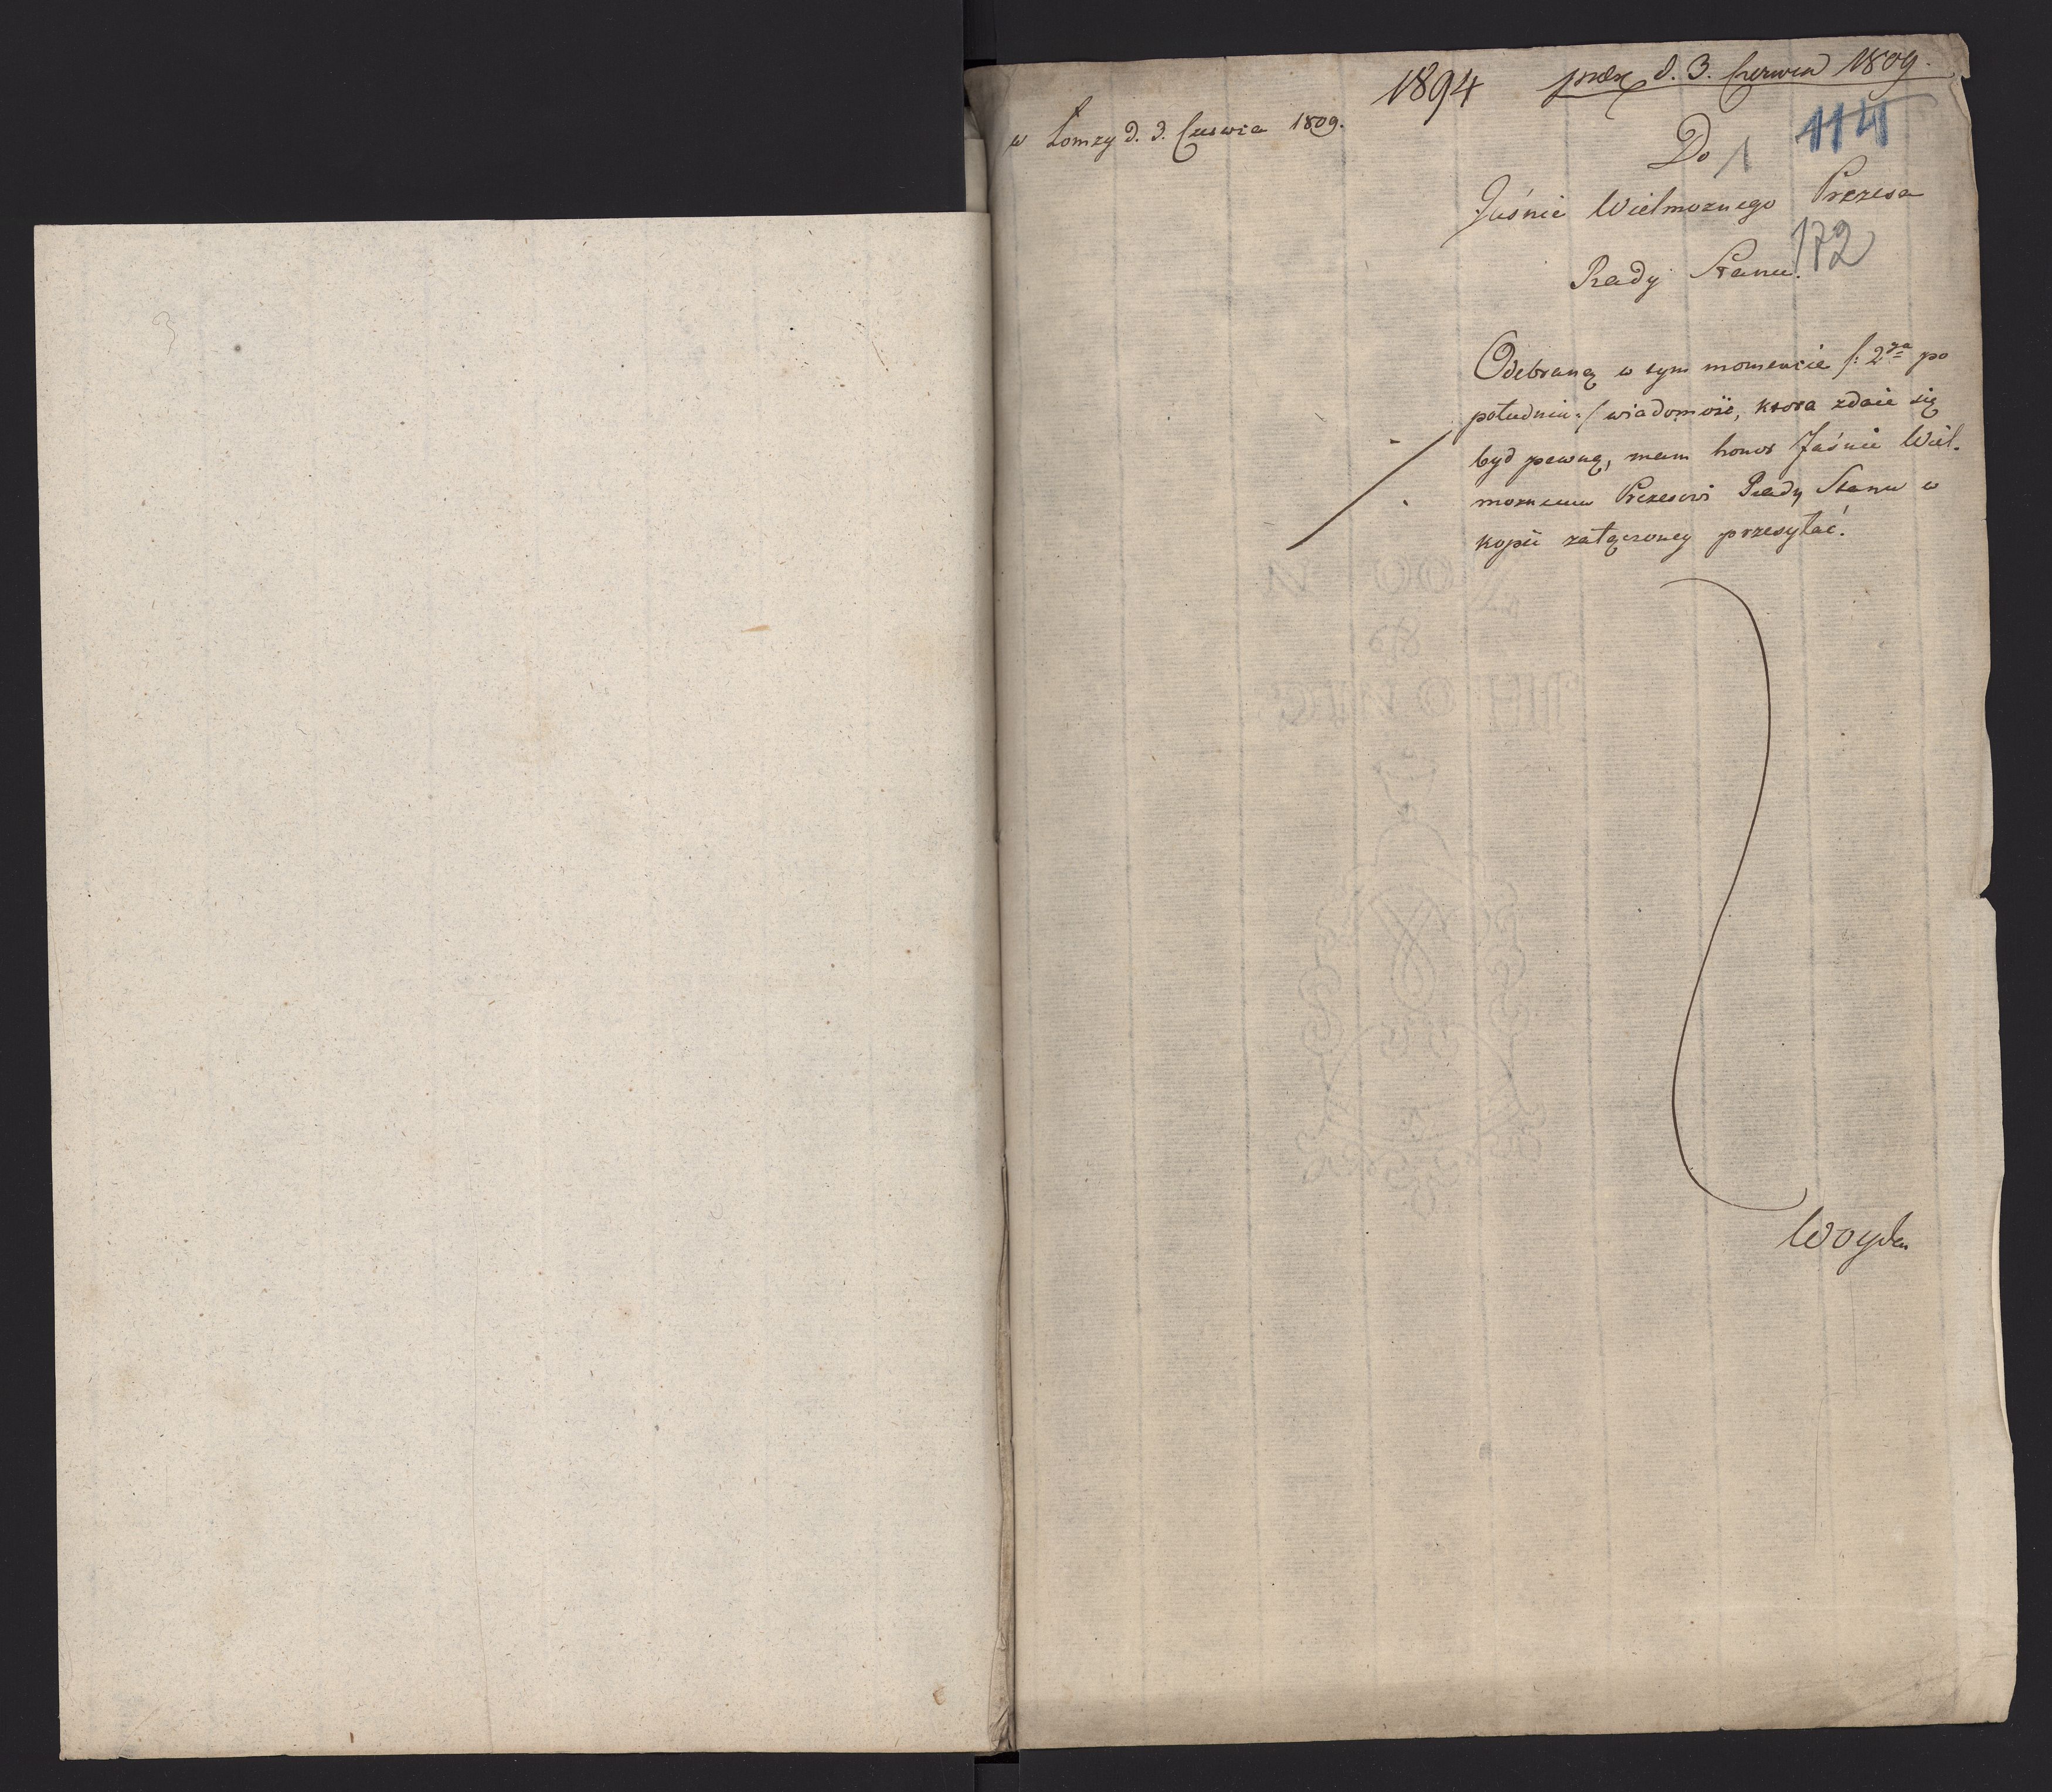 1894 d. 3. Czerwca 1809.
w Łomzy d. 3. Czerwca 1809.
114
Do 1
Jaśnie Wielmoznego Prezesa
172
Rady Stanu.
Odebraną w tym momencie /: 2ga po
południu :/ wiadomość, ktora zdaie się
byd pewną, mam honor Jaśnie Wiel.
moznemu Prezesowi Rady Stanu w
kopii załączoney przesyłać.
Woyda